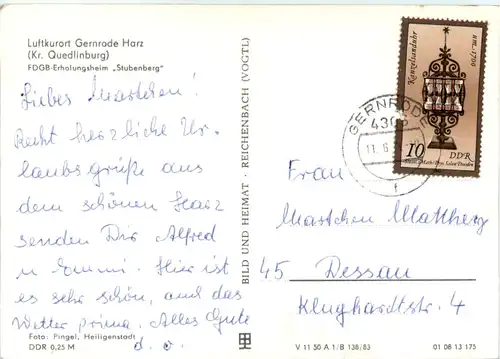 Luftkurort Gernrode Harz
(Kr. Quedlinburg)
FDGB-Erholungsheim „Stubenberg"
Liebes Martchen!
Recht herzliche Ur-
laubsgrüße aus
dem schönen Harz
senden Dir Alfred
u. Emmi. Hier ist
es sehr schön, und das
Wetter prima. Alles Gute
Foto: Pingel, Heiligenstadt
DDR 0,25 M
BILD UND HEIMAT · REICHENBACH (VOGTL)
Kanzelsanduhr
um 1700
10
DDR
GERNRODE
430
11.6
Frau
Martchen Mattherz
45 Dessau
Klughardtstr. 4
V 11 50 A 1/B 138/83
01 08 13 175